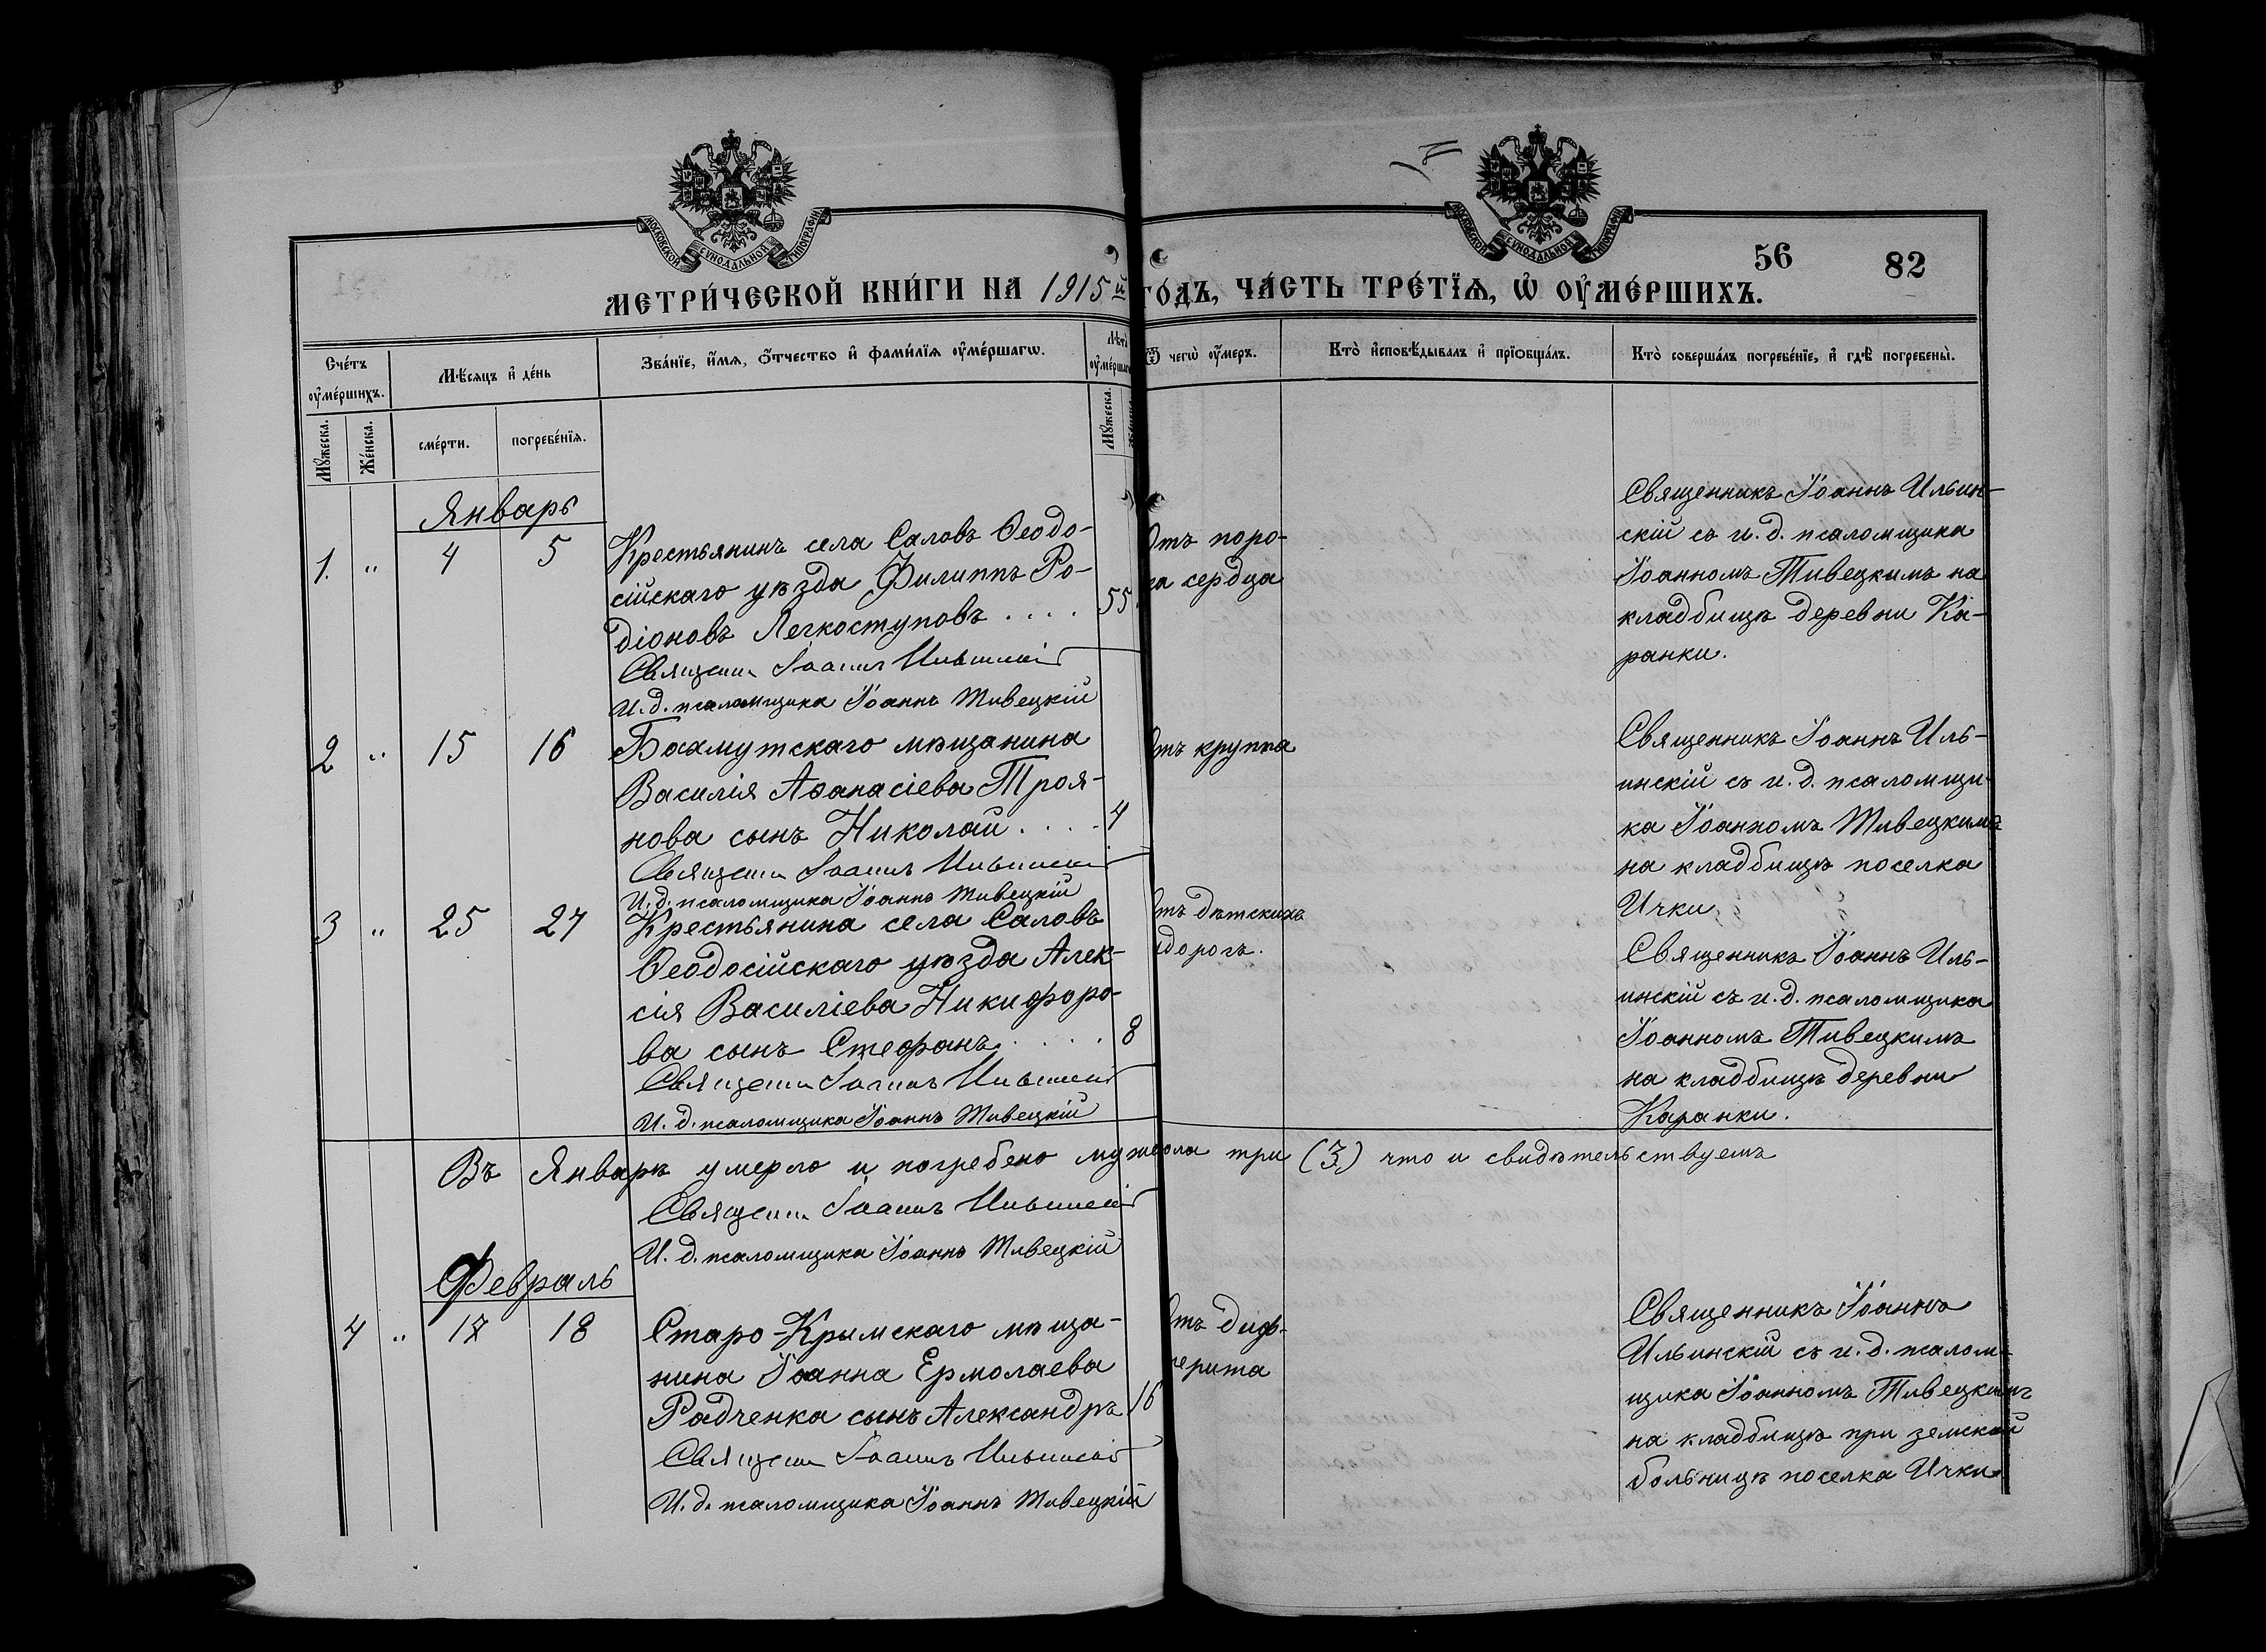 МОСКОВСКОЙ СѴНОДАЛЬНОЙ ТИПОГРАФІИ
МОСКОВСКОЙ СѴНОДАЛЬНОЙ ТИПОГРАФІИ
56 82
МЕТРИ́ЧЕСКОЙ КНИ́ГИ НА 1915й ГО́ДЪ, ЧА́СТЬ ТРЕ́ТЇѦ, Ѡ҆ ОУ҆МЕ́РШИХЪ.
Сче́тъ оу҆ме́ршихъ.
Мѣ́сяцъ и҆ де́нь
Зва́нїе, и҆́мѧ, ѻ҆́тчество и҆ фами́лїѧ оу҆ме́ршагѡ.
Лѣ́та оу҆ме́ршаг
Ѿ чегѡ̀ оу҆́меръ.
Кто̀ и҆сповѣ́дывалъ и҆ прїѡбща́лъ.
Кто̀ соверша́лъ погребе́нїе, и҆ гдѣ̀ погребены̀.
Мꙋ́жеска.
Же́нска.
сме́рти.
погребе́нїѧ.
Мꙋ́жеска.
Январь
1. " 4 5
Крестьянинъ села Саловъ Ѳеодо-
сійскаго уѣзда Филиппъ Ро-
діоновъ Легкоступовъ . . . . 55
Священ. Іоаннъ Ильинскій
И. д. псаломщика Іоаннъ Тивецкій
Отъ поро-
ка сердца
Священникъ Іоаннъ Ильин-
скій съ и. д. псаломщика
Іоанномъ Тивецкимъ на
кладбищѣ деревни Ка-
ранки.
2 " 15 16
Бахмутскаго мѣщанина
Василія Аѳанасіева Троя-
нова сынъ Николай . . . . 4
Священ. Іоаннъ Ильинскій
И. д. псаломщика Іоаннъ Тивецкій
Отъ круппа
Священникъ Іоаннъ Иль-
инскій съ и. д. псаломщи-
ка Іоанномъ Тивецкимъ
на кладбищѣ поселка
Ички
3 " 25 27
Крестьянина села Саловъ
Ѳеодосійскаго уѣзда Алек-
сія Василіева Никифоро-
ва сынъ Стефанъ . . . . . 8
Священ. Іоаннъ Ильинскій
И. д. псаломщика Іоаннъ Тивецкій
Отъ дѣтскихъ
судорогъ.
Священникъ Іоаннъ Иль-
инскій съ и. д. псаломщика
Іоанномъ Тивецкимъ
на кладбищѣ деревни
Каранки.
Въ Январѣ умерло и погребено муж. пола три (3) что и свидѣтельствуемъ
Священ. Іоаннъ Ильинскій
И. д. псаломщика Іоаннъ Тивецкій
Февраль
4 " 17 18
Старо-Крымскаго мѣща-
нина Іоанна Ермолаева
Радченка сынъ Александръ 16
Священ. Іоаннъ Ильинскій
И. д. псаломщика Іоаннъ Тивецкій
Отъ диф-
терита
Священникъ Іоаннъ
Ильинскій съ и. д. псалом-
щика Іоанномъ Тивецкимъ
на кладбищѣ при земской
больницѣ поселка Ички.